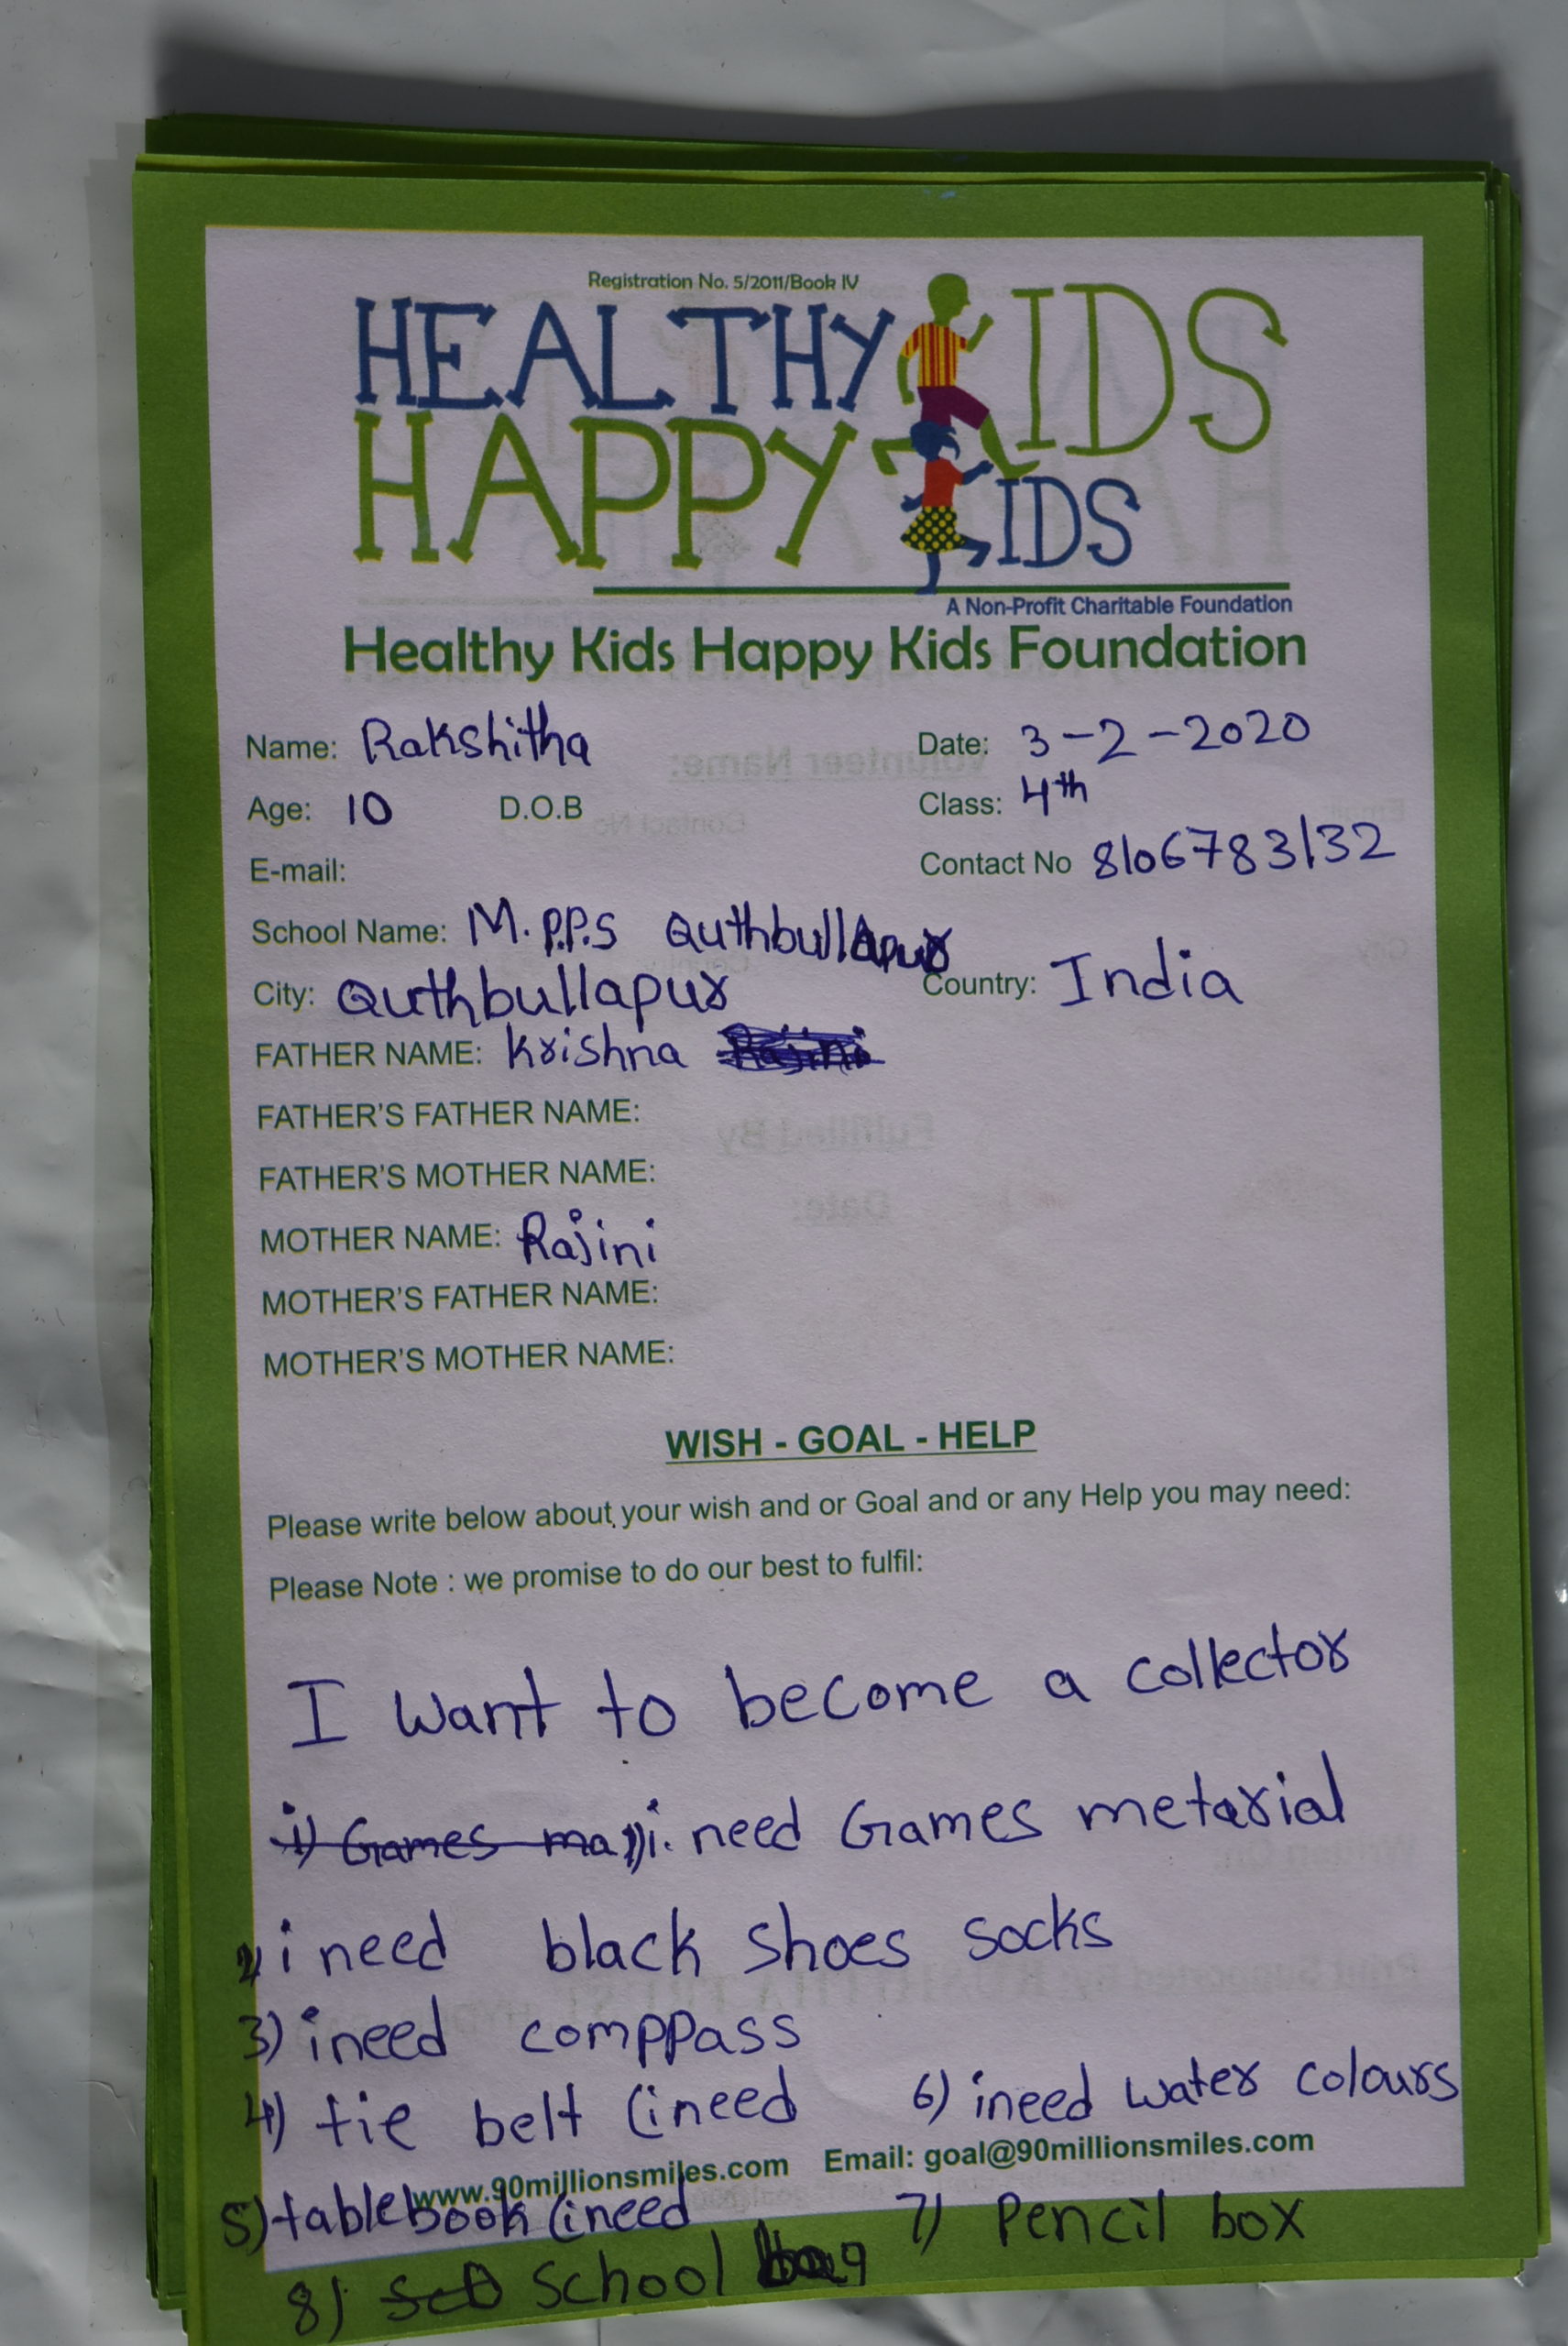 Registration No. 5/2011/Book IV
HEALTHY KIDS
HAPPY KIDS
A Non-Profit Charitable Foundation
Healthy Kids Happy Kids Foundation
Name: Rakshitha Date: 3-2-2020
Age: 10 D.O.B Class: 4th
E-mail: Contact No 8106783132
School Name: M.P.P.S Quthbullapur
City: Quthbullapur Country: India
FATHER NAME: Krishna Rajini
FATHER'S FATHER NAME:
FATHER'S MOTHER NAME:
MOTHER NAME: Rajini
MOTHER'S FATHER NAME:
MOTHER'S MOTHER NAME:
WISH - GOAL - HELP
Please write below about your wish and or Goal and or any Help you may need:
Please Note : we promise to do our best to fulfil:
I want to become a collector
1) Games ma 1) i. need Games metarial
2) i need black shoes socks
3) ineed comppass
4) tie belt (ineed 6) ineed water colours
www.90millionsmiles.com Email: goal@90millionsmiles.com
5) table book (ineed 7) Pencil box
8) School bag